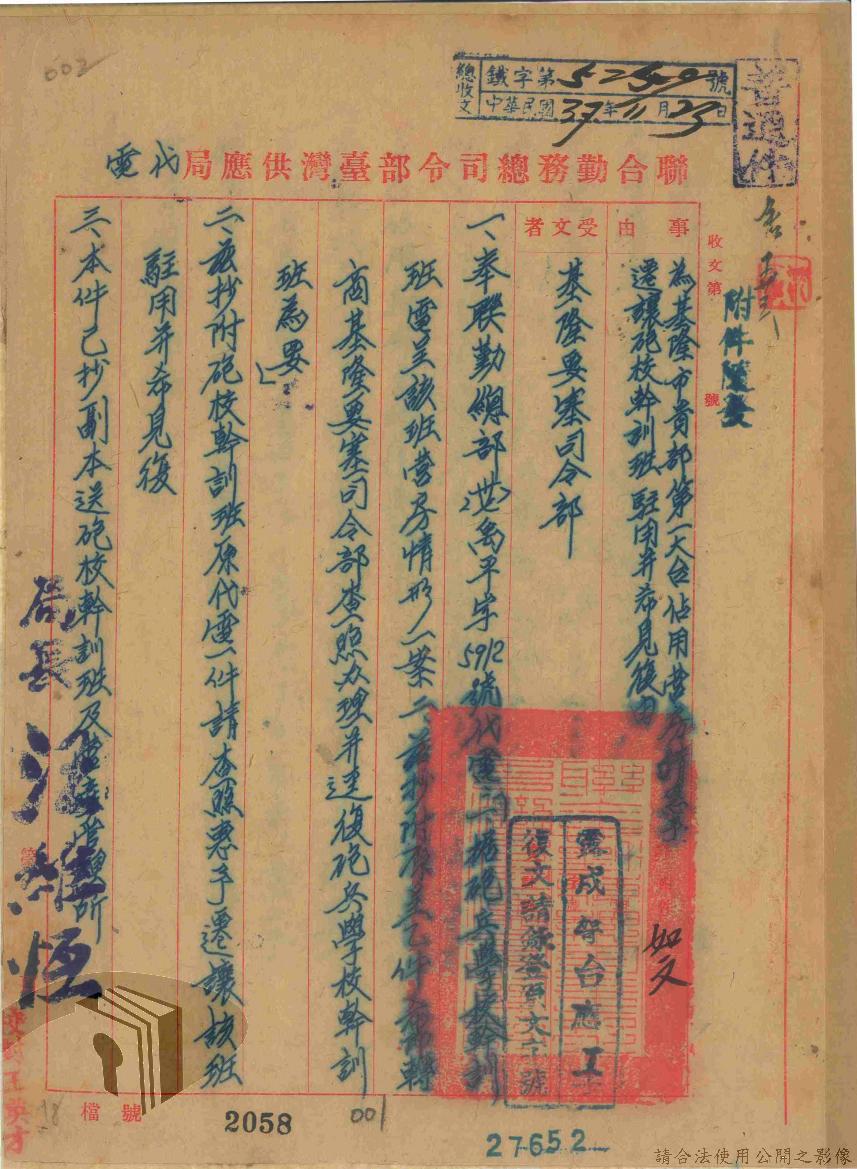 002
總收文
鐵字第5259號
中華民國37年11月23日
普通件
聯合勤務總司令部臺灣供應局代電
收文第 號
附件隨
事由
為基隆市貴部第一大台佔用營房
遷讓砲校幹訓班駐用并希見復由
受文者
基隆要塞司令部
如文
一、奉聯勤總部禹平字5912號代電「一、據砲兵學校幹訓
班電呈該班營房情形一案二、茲抄附原呈乙件希轉
商基隆要塞司令部查照办理并逕復砲兵學校幹訓
班為要」
二、茲抄附砲校幹訓班原代電一件請查照惠予遷讓該班
駐用并希見復
三、本件已抄副本送砲校幹訓班及管理所
局長 江維恆
復文請錄登頁文字號
檔號
2058
001
27652
18
請合法使用公開之影像